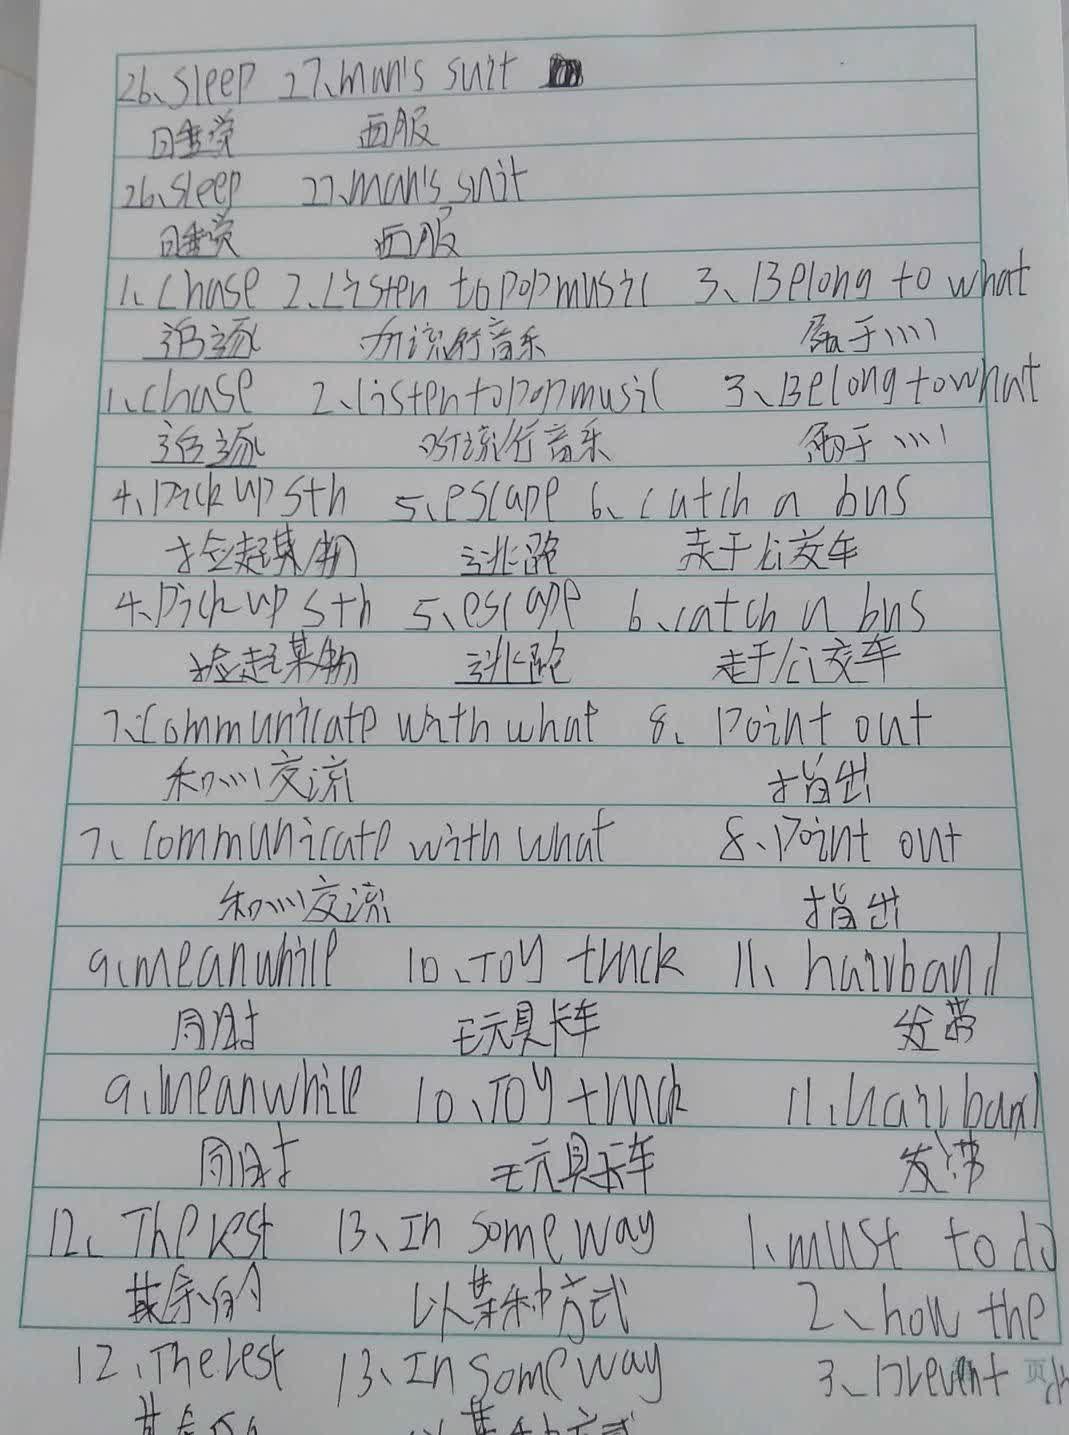 26、sleep 27、man's suit
睡觉 西服
26、sleep 27、man's suit
睡觉 西服
1、chase 2、Listen to pop music 3、Belong to what
追逐 听流行音乐 属于……
1、chase 2、Listen to pop music 3、Belong to what
追逐 听流行音乐 属于……
4、Pick up sth 5、escape 6、catch a bus
捡起某物 逃跑 走于公交车
4、Pick up sth 5、escape 6、catch a bus
捡起某物 逃跑 走于公交车
7、Communicate with what 8、Point out
和……交流 指出
7、Communicate with what 8、Point out
和……交流 指出
9、meanwhile 10、Toy truck 11、hairband
同时 玩具卡车 发带
9、meanwhile 10、Toy truck 11、hairband
同时 玩具卡车 发带
12、The rest 13、In some way 1、must to do
其余的 以某种方式 2、how the
12、The rest 13、In some way 3、Prevent 页
其余的 以某种方式